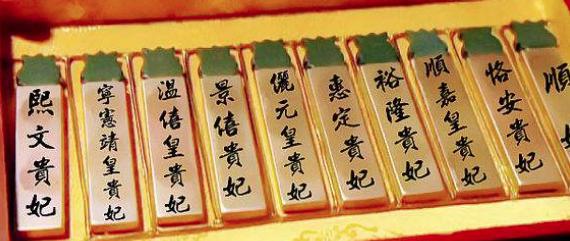 熙文貴妃
寧憲靖皇貴妃
溫僖皇貴妃
景僖貴妃
儷元皇貴妃
惠定貴妃
裕隆貴妃
順嘉皇貴妃
恪安貴妃
順